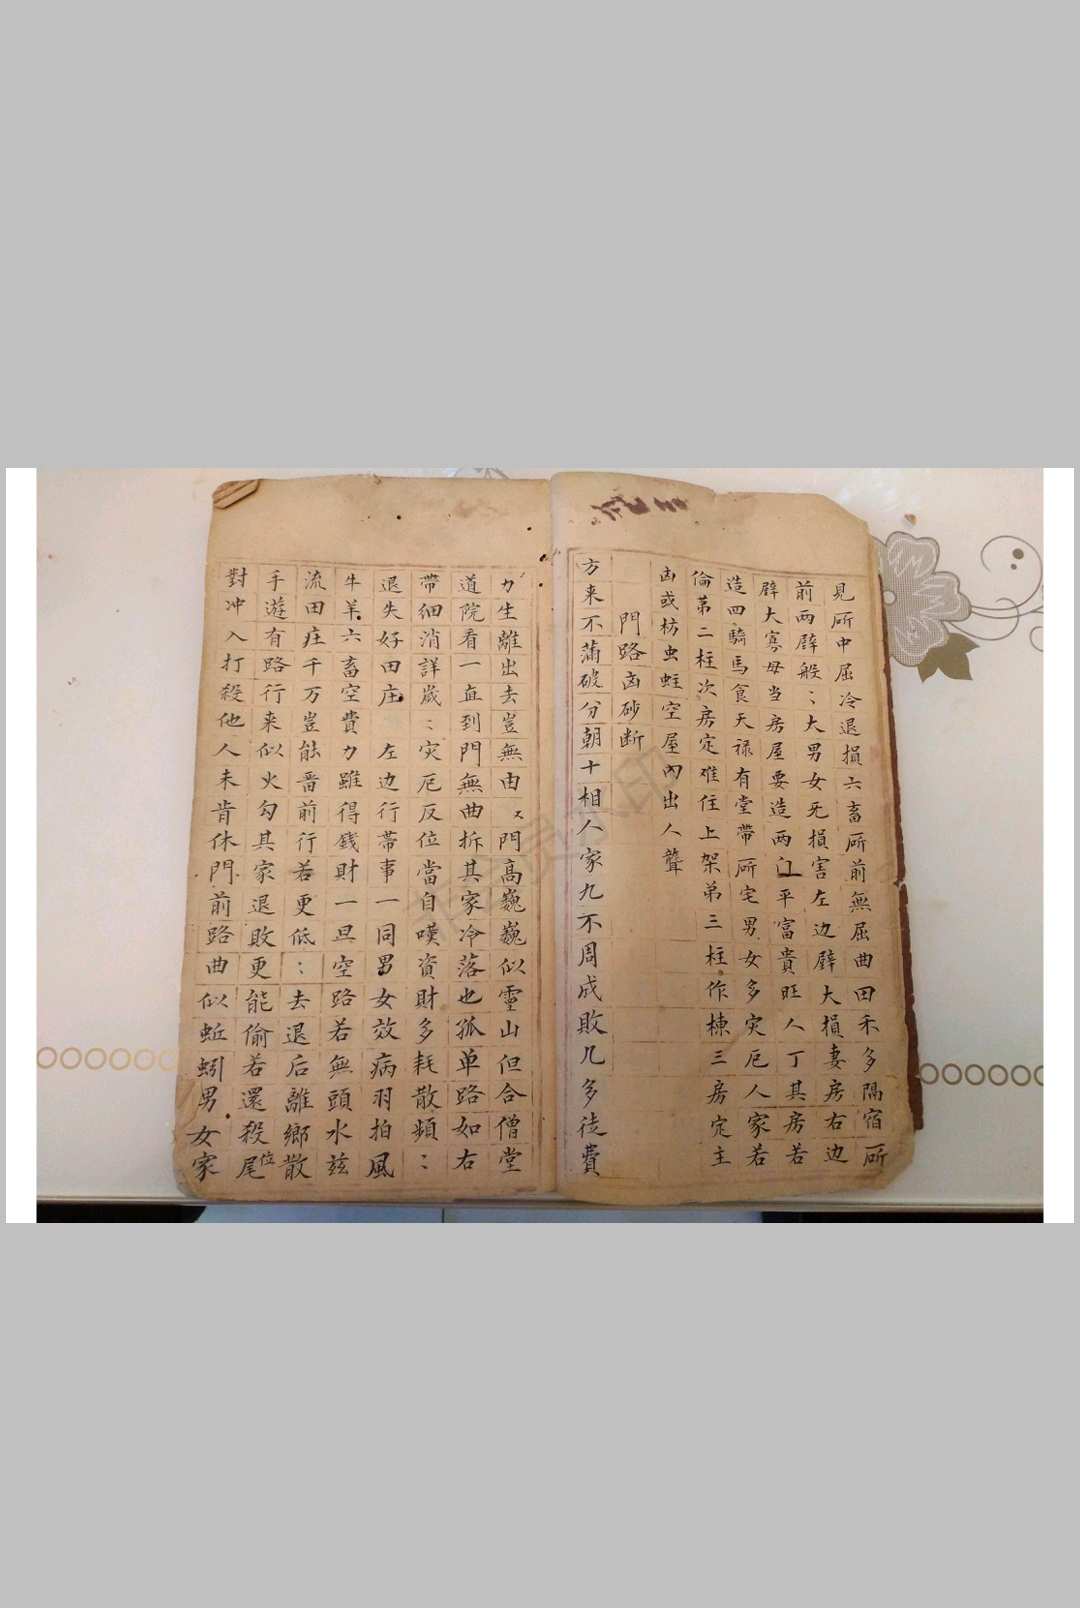 見所中屈冷退損六畜所前無屈曲田禾多隔宿所
前兩辟般：大男女死損害左边辟大損妻房右边
辟大寡母当房屋要造两门平富貴旺人丁其房若
造四騎馬食天禄有堂帶所宅男女多灾厄人家若
倫第二柱次房定难住上架弟三柱作棟三房定主
凶或枋虫蛀空屋內出人聾
門路凶砂断
方来不蒲破分朝十相人家九不周成敗几多徒費
力生離出去豈無由又門高巍巍似灵山但合僧堂
道院看一直到門無曲拆其家冷落也孤单路如右
帶細消詳歲：灾厄反位當自嘆資財多耗散頻：
退失好田庄左边行帯事一同男女效病羽拍風
牛羊六畜空費力雖得錢財一旦空路若無頭水玆
流田庄千万豈能啬前行若更低：去退后離鄉散
手遊有路行来似火勾其家退敗更能偷若還殺尾位
對冲入打殺他人未肯休門前路曲似蚯蚓男女家